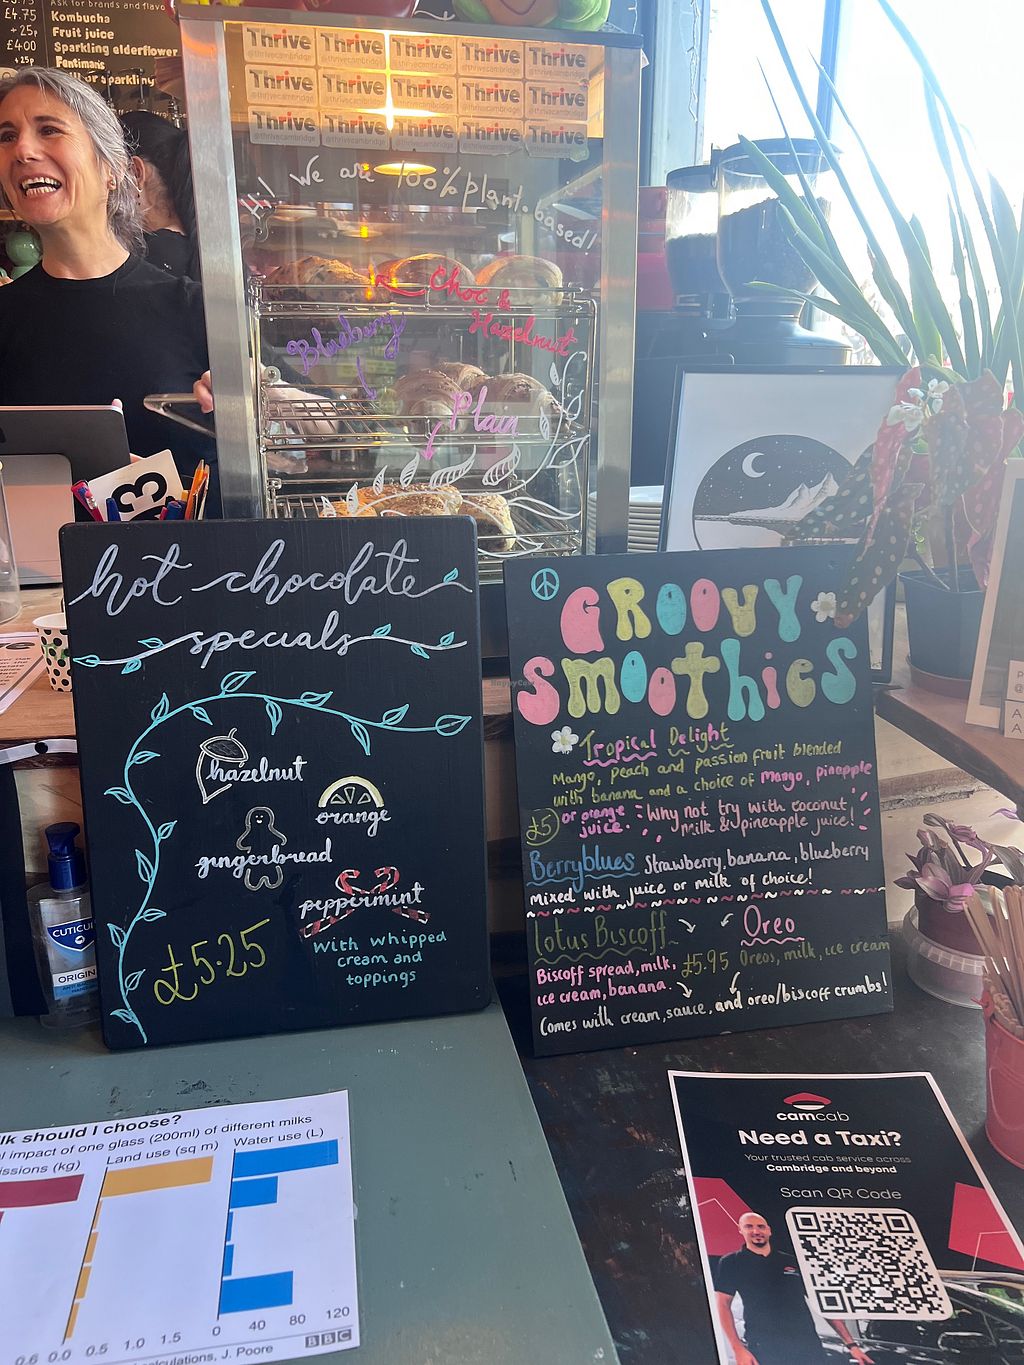 Ask for brands and flavo
£4.75
Kombucha
+ 25p
Fruit juice
£4.00
Sparkling elderflower
+25p
Fentimans
or sparkling
Thrive Thrive Thrive Thrive Thrive
@thrivecambridge
Thrive Thrive Thrive Thrive Thrive
@thrivecambridge
Thrive Thrive Thrive Thrive Thrive
@thrivecambridge
Hi! We are 100% plant-based!
Choc &
Hazelnut
Blueberry
Plain
3
hot chocolate
specials
hazelnut
orange
gingerbread
peppermint
£5.25
with whipped
cream and
toppings
GROOVY
SMOOTHIES
Tropical Delight
Mango, peach and passion fruit blended
with banana and a choice of mango, pineapple
£5
or orange
juice.
Why not try with coconut
milk & pineapple juice!
Berryblues Strawberry, banana, blueberry
Mixed with juice or milk of choice!
Lotus Biscoff
Oreo
Biscoff spread, milk,
ice cream, banana.
£5.95
Oreos, milk, ice cream
Comes with cream, sauce, and oreo/biscoff crumbs!
CUTICU
ORIGIN
lk should I choose?
l impact of one glass (200ml) of different milks
issions (kg)
Land use (sq m)
Water use (L)
0.6 0.0 0.5 1.0 1.5 0 40 80 120
calculations, J. Poore
BBC
camcab
Need a Taxi?
Your trusted cab service across
Cambridge and beyond
Scan QR Code